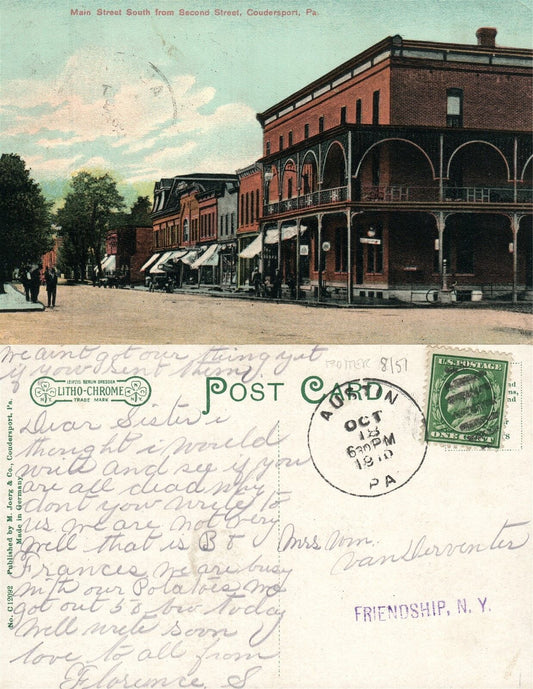 Main Street South from Second Street, Coudersport, Pa.
We aint got our thing yet
if you sent them.
POTTER 8/51
LEIPZIG BERLIN DRESDEN
LITHO-CHROME
TRADE MARK
POST CARD
AUSTIN
OCT
18
630 PM
1910
PA
U.S. POSTAGE
ONE CENT
Dear Sister i
thought i would
write and see if you
are all dead why
dont you write to
us we are not very
well that is B &
Frances we are busy
with our Potatoes we
got out 50 bu today
well write soon
love to all from
Florence S
Mrs Wm.
VanDerventer
FRIENDSHIP, N. Y.
No. C12092 Published by M. Joerg & Co., Coudersport, Pa.
Made in Germany